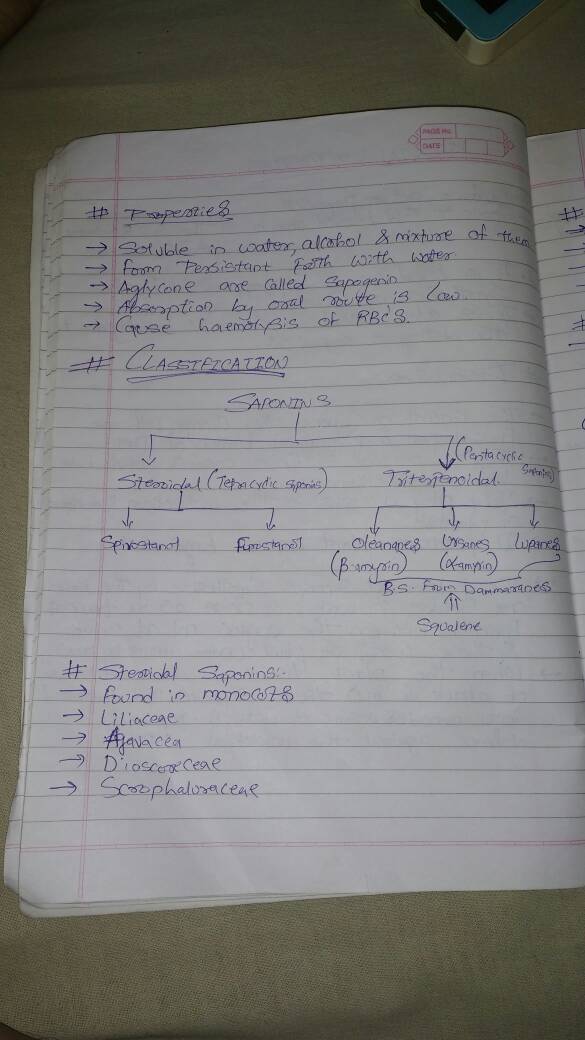 PAGE NO.
DATE
# Properties
→ Soluble in water, alcohol & mixture of them
→ Form Persistant Froth with water
→ Aglycone are called Sapogenin
→ Absorption by oral route is Low.
→ Cause haemolysis of RBCS.
# CLASSIFICATION
SAPONINS
(Pentacyclic Saponins)
Steroidal (Tetracyclic Saponins) Triterpenoidal
Spirostanol Furostanol Oleananes Ursanes Lupanes
(β-amyrin) (α-amyrin)
B.S. From Dammaranes
Squalene
# Steroidal Saponins:-
→ Found in monocots
→ Liliaceae
→ Agavacea
→ Dioscoreceae
→ Scrophaluraceae
#
→